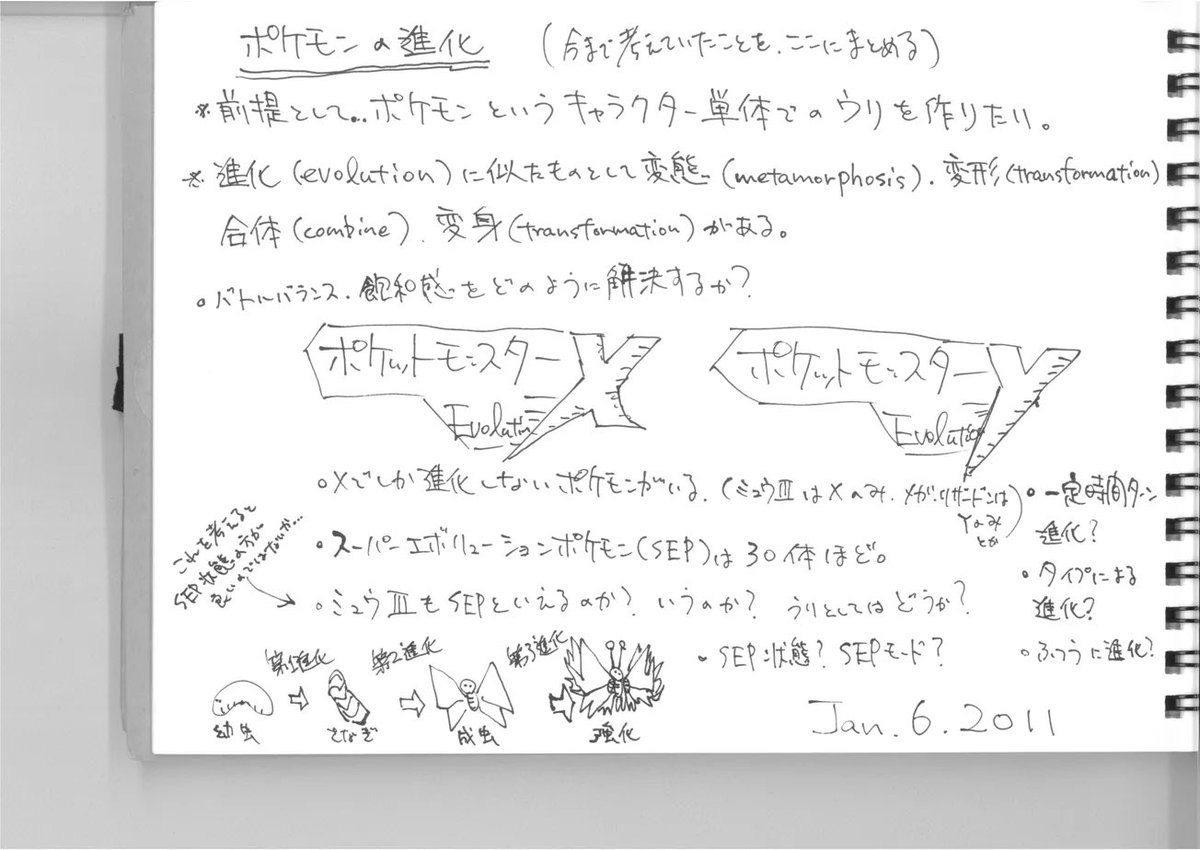 ポケモンの進化 (今まで考えていたことを、ここにまとめる)
※前提として…ポケモンというキャラクター単体でのウリを作りたい。
※進化(evolution)に似たものとして変態(metamorphosis)、変形(transformation)
合体(combine)、変身(transformation)がある。
○バトルバランス、飽和感をどのように解決するか?
ポケットモンスターX
Evolution
ポケットモンスターY
Evolution
○Xでしか進化しないポケモンがいる。(ミュウⅢはXのみ、メガリザードンは
Yのみ
とか)
・スーパーエボリューションポケモン(SEP)は30体ほど。
・ミュウⅢもSEPといえるのか? いうのか? うりとしてはどうか?
・SEP状態? SEPモード?
○一定時間ターン
進化?
・タイプによる
進化?
・ふつうに進化?
これを考えると
SEP状態の方が
良いのではないか…
第1進化
第2進化
第3進化
幼虫
さなぎ
成虫
強化
Jan. 6. 2011